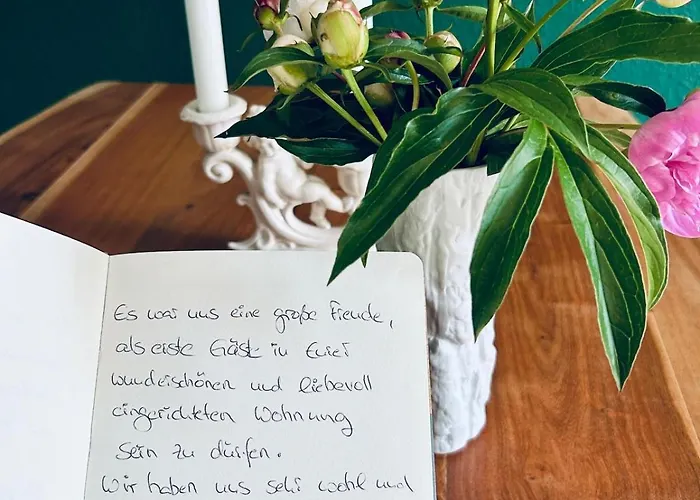 Es war uns eine große Freude,
als erste Gäste in Eurer
wunderschönen und liebevoll
eingerichteten Wohnung
sein zu dürfen.
Wir haben uns sehr wohl und